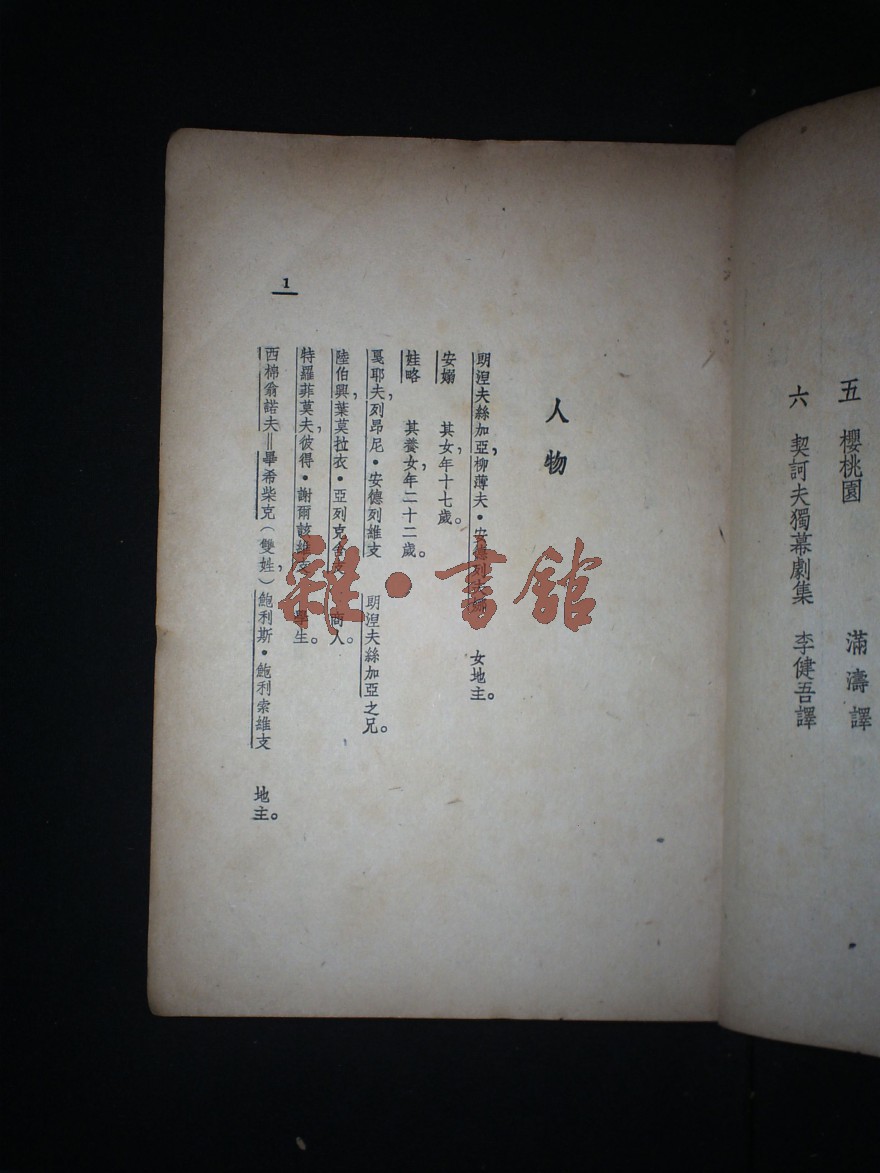 五 櫻桃園 滿濤譯
六 契訶夫獨幕劇集 李健吾譯
人物
朗涅夫絲加亞,柳薄夫·安德列夫娜 女地主。
安嫋 其女,年十七歲。
娃略 其養女,年二十二歲。
戛耶夫,列昂尼·安德列維支 朗涅夫絲加亞之兄。
陸伯興,葉莫拉衣·亞列克舍支 商人。
特羅菲莫夫,彼得·謝爾該維支 學生。
西棉翁諾夫=畢希柴克(雙姓),鮑利斯·鮑利索維支 地主。
1
雜·書館